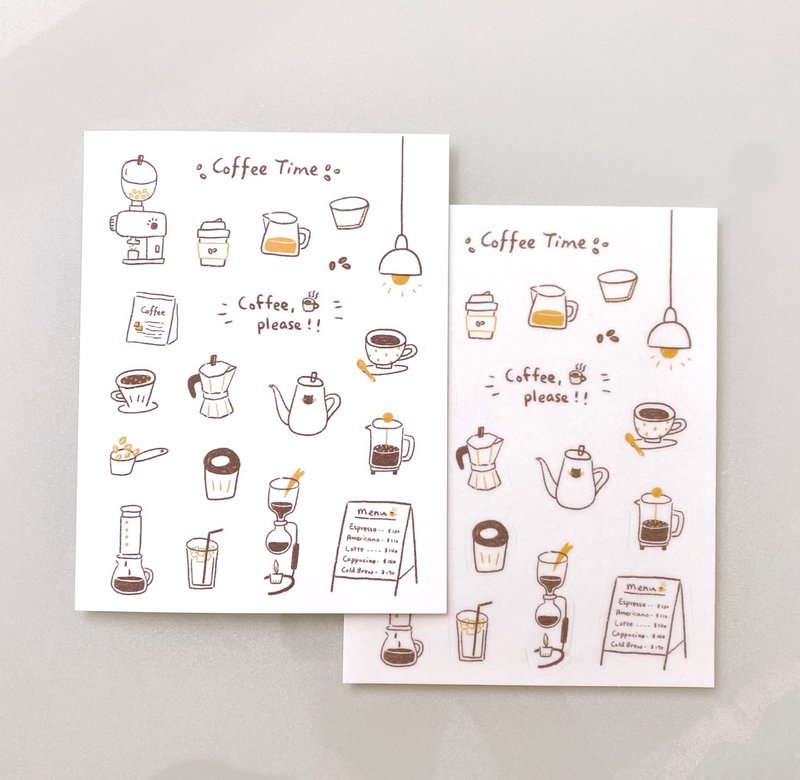 Coffee Time
Coffee
Coffee,
please!!
Menu
Espresso -- $120
Americano - $110
Latte ---- $140
Cappucino - $160
Cold Brew - $170
Coffee Time
Coffee,
please!!
Menu
Espresso -- $120
Americano - $110
Latte ---- $140
Cappucino - $160
Cold Brew - $170